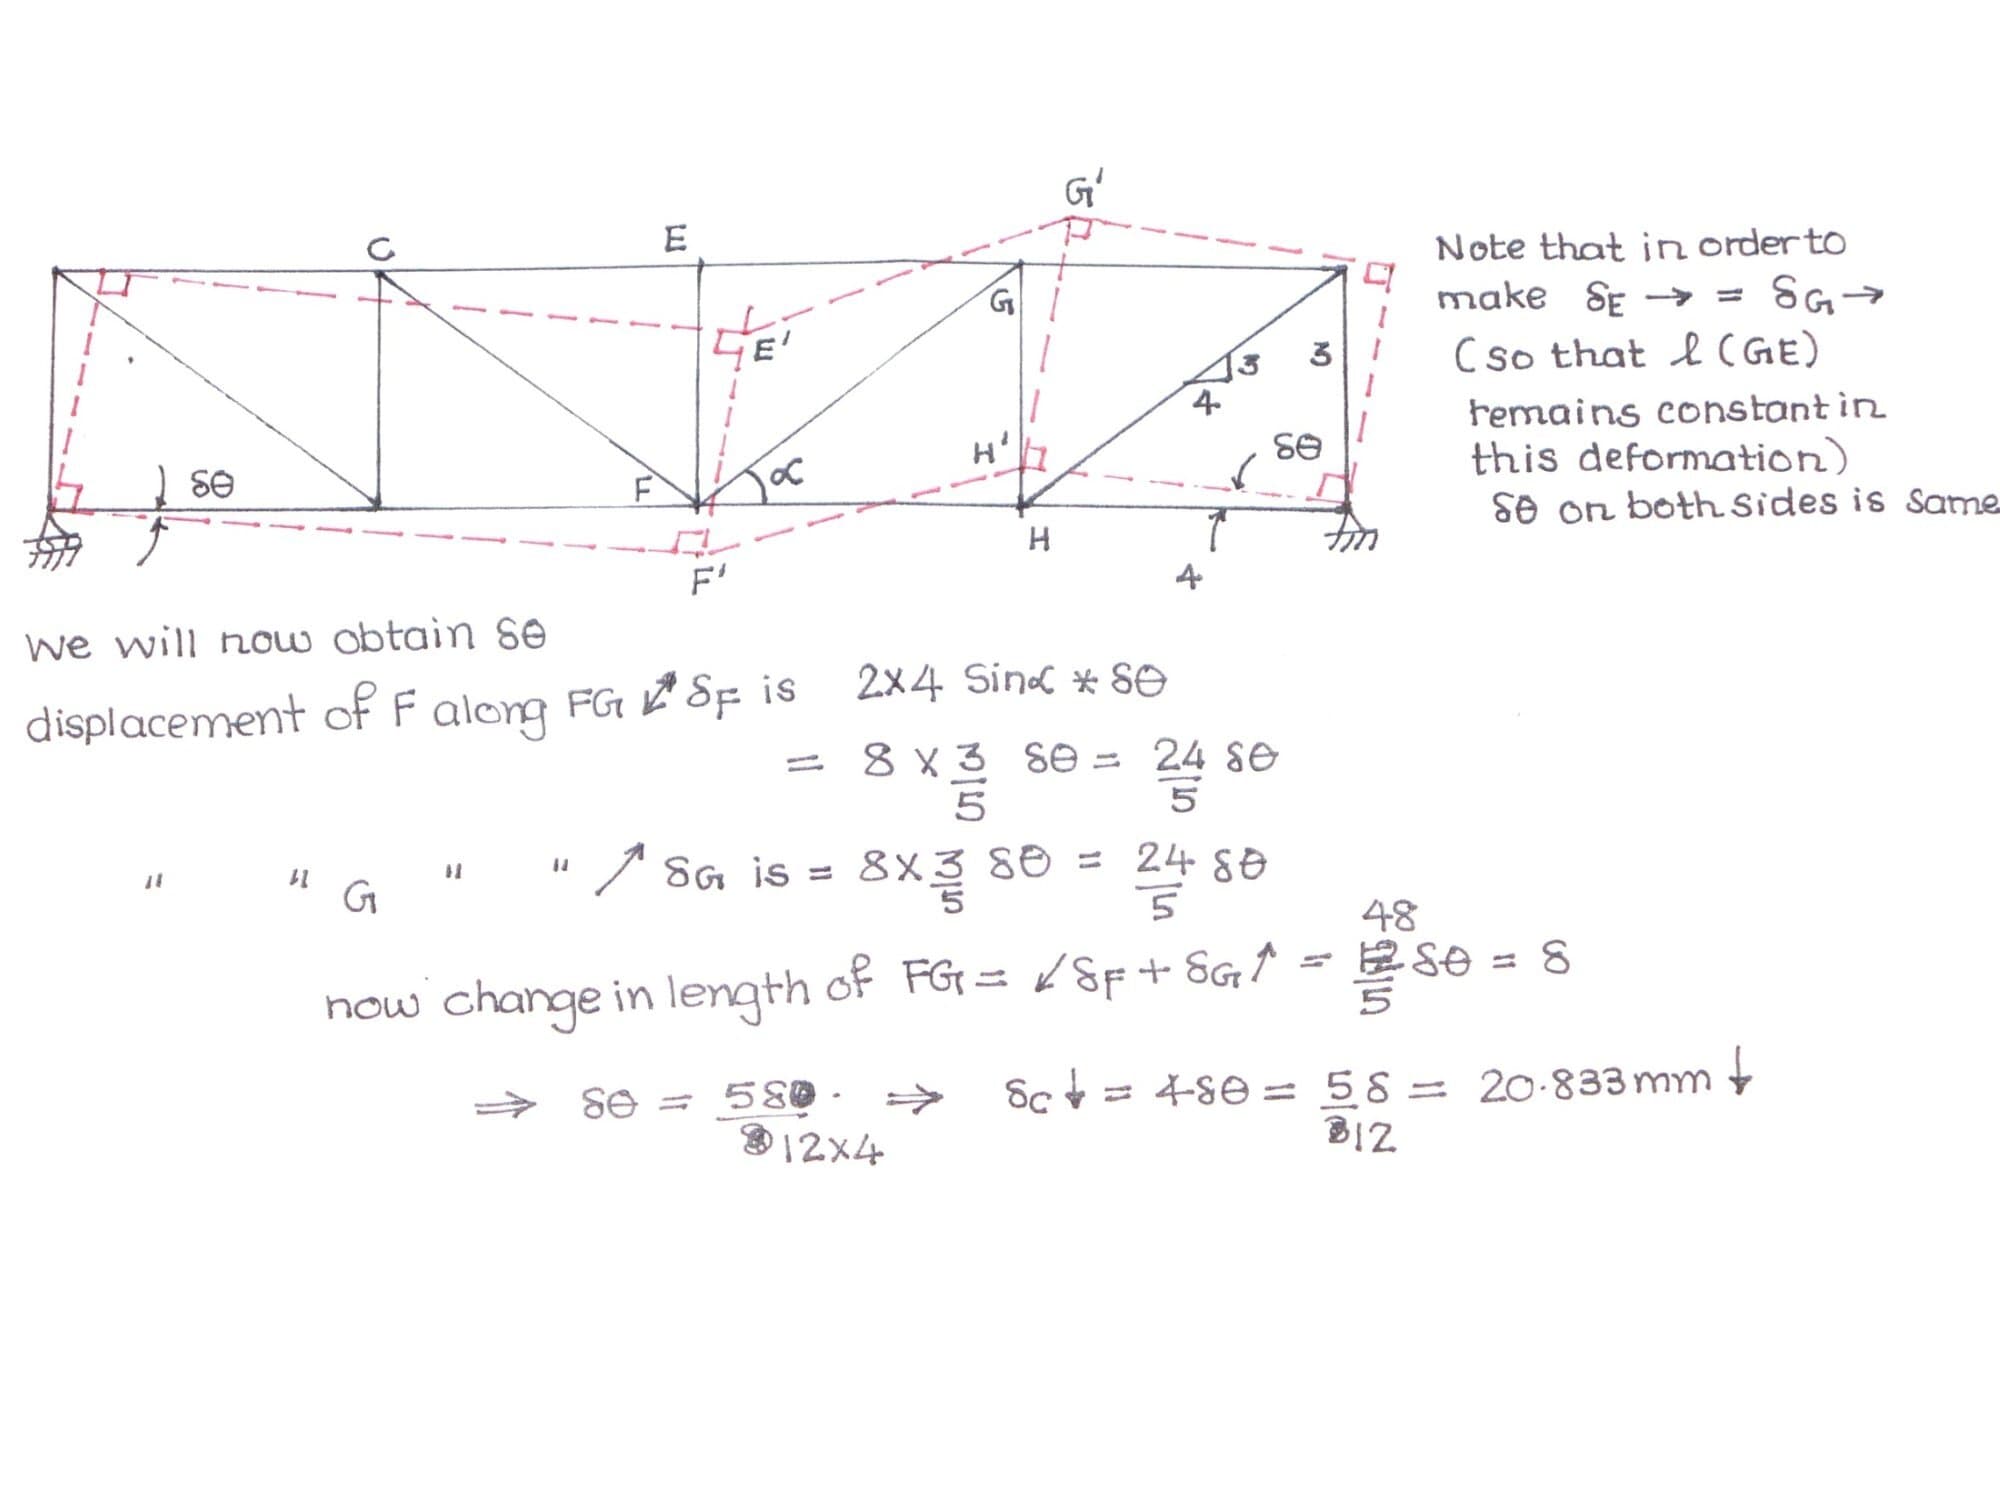 G'
C
E
G
E'
F
α
H'
H
F'
δθ
δθ
3
4
3
4
Note that in order to
make δE → = δG →
(so that l (GE)
remains constant in
this deformation)
δθ on both sides is same
We will now obtain δθ
displacement of F along FG ↙ δF is 2×4 Sinα * δθ
= 8 × 3/5 δθ = 24/5 δθ
" " G " " ↗ δG is = 8×3/5 δθ = 24/5 δθ
now change in length of FG = ↙δF + δG↑ = 48/5 δθ = δ
⇒ δθ = 5δ/12×4 . ⇒ δC↓ = 4δθ = 5δ/12 = 20.833mm ↓